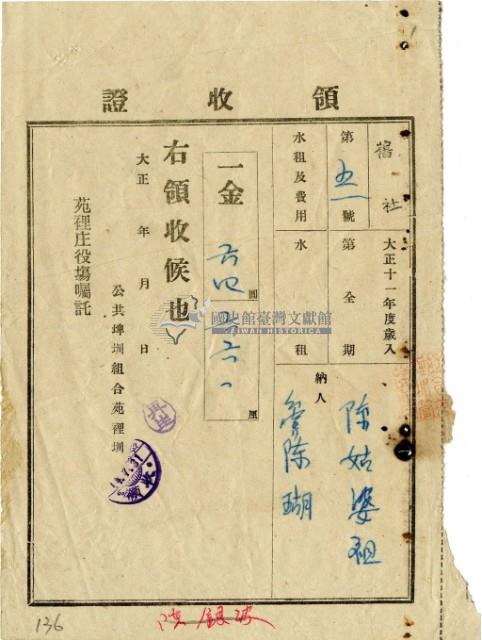 領收證
舊社
大正十一年度歲入
第五一號
第全期
水租及費用
水租
納人
陳姑婆祖
陳瑚
一金
圓
厘
右領收候也
大正 年 月 日
公共埤圳組合苑裡圳
苑裡庄役場囑託
國史館臺灣文獻館
TAIWAN HISTORICA
136